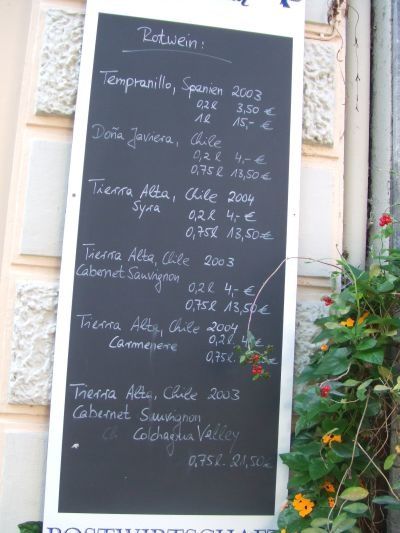 Rotwein:
Tempranillo, Spanien 2003
0,2l 3,50 €
1l 15,- €
Doña Javiera, Chile
0,2l 4,- €
0,75l 13,50 €
Tierra Alta, Chile 2004
Syra
0,2l 4,- €
0,75l 13,50 €
Tierra Alta, Chile 2003
Cabernet Sauvignon
0,2l 4,- €
0,75l 13,50 €
Tierra Alta, Chile 2004
Carmenere 0,2l 4
0,75l
Tierra Alta, Chile 2003
Cabernet Sauvignon
Colchagua Valley
0,75l 21,50 €
POSTWIRTSCHAFT